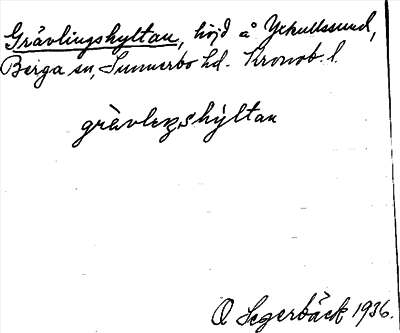 Grävlingshyltan, höjd å Yxkullssund,
Berga sn, Sunnerbo hd. Kronob. l.
grävleŋshýltan
O Segerbäck 1936.